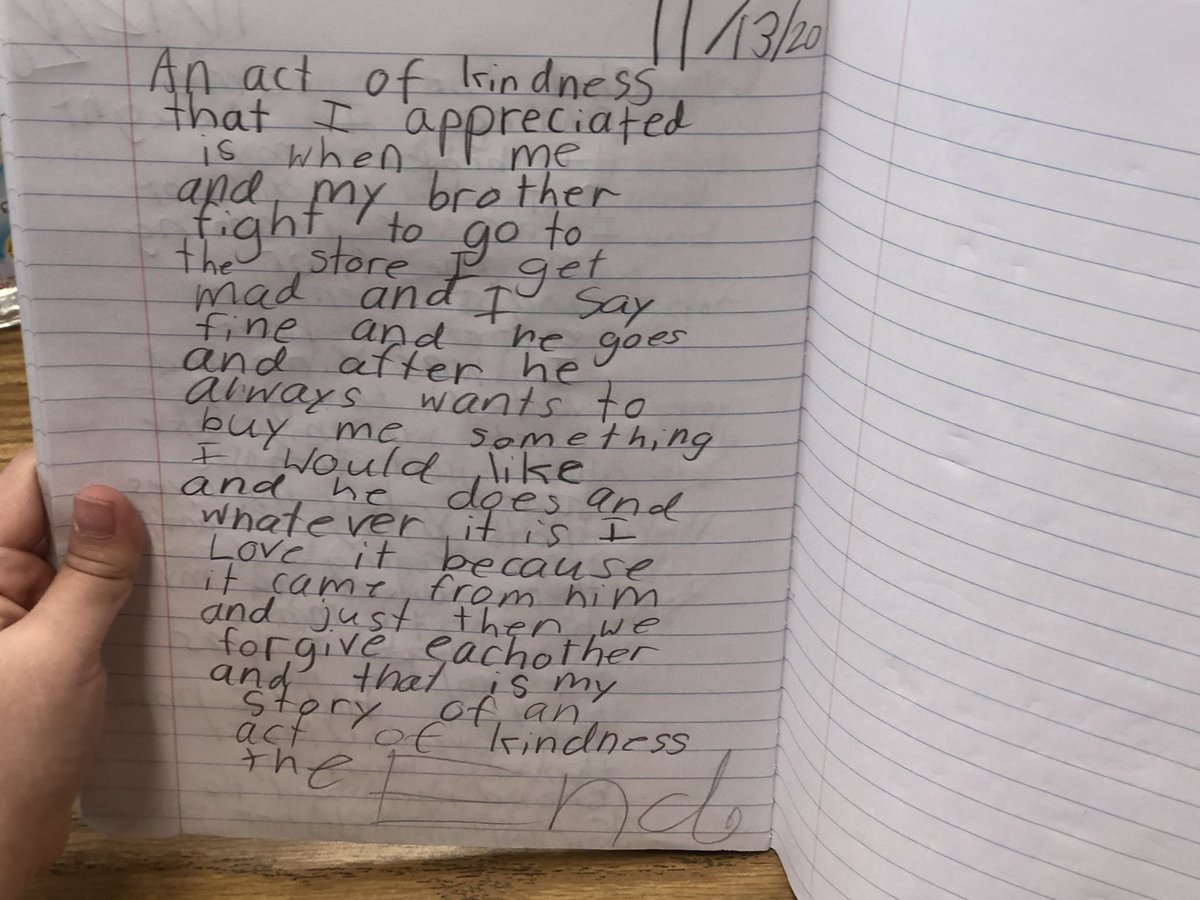 11/13/20
An act of kindness
that I appreciated
is when me
and my brother
fight to go to
the store I get
mad and I say
fine and he goes
and after he
always wants to
buy me something
I would like
and he does and
whatever it is I
Love it because
it came from him
and just then we
forgive eachother
and that is my
story of an
act of kindness
the End